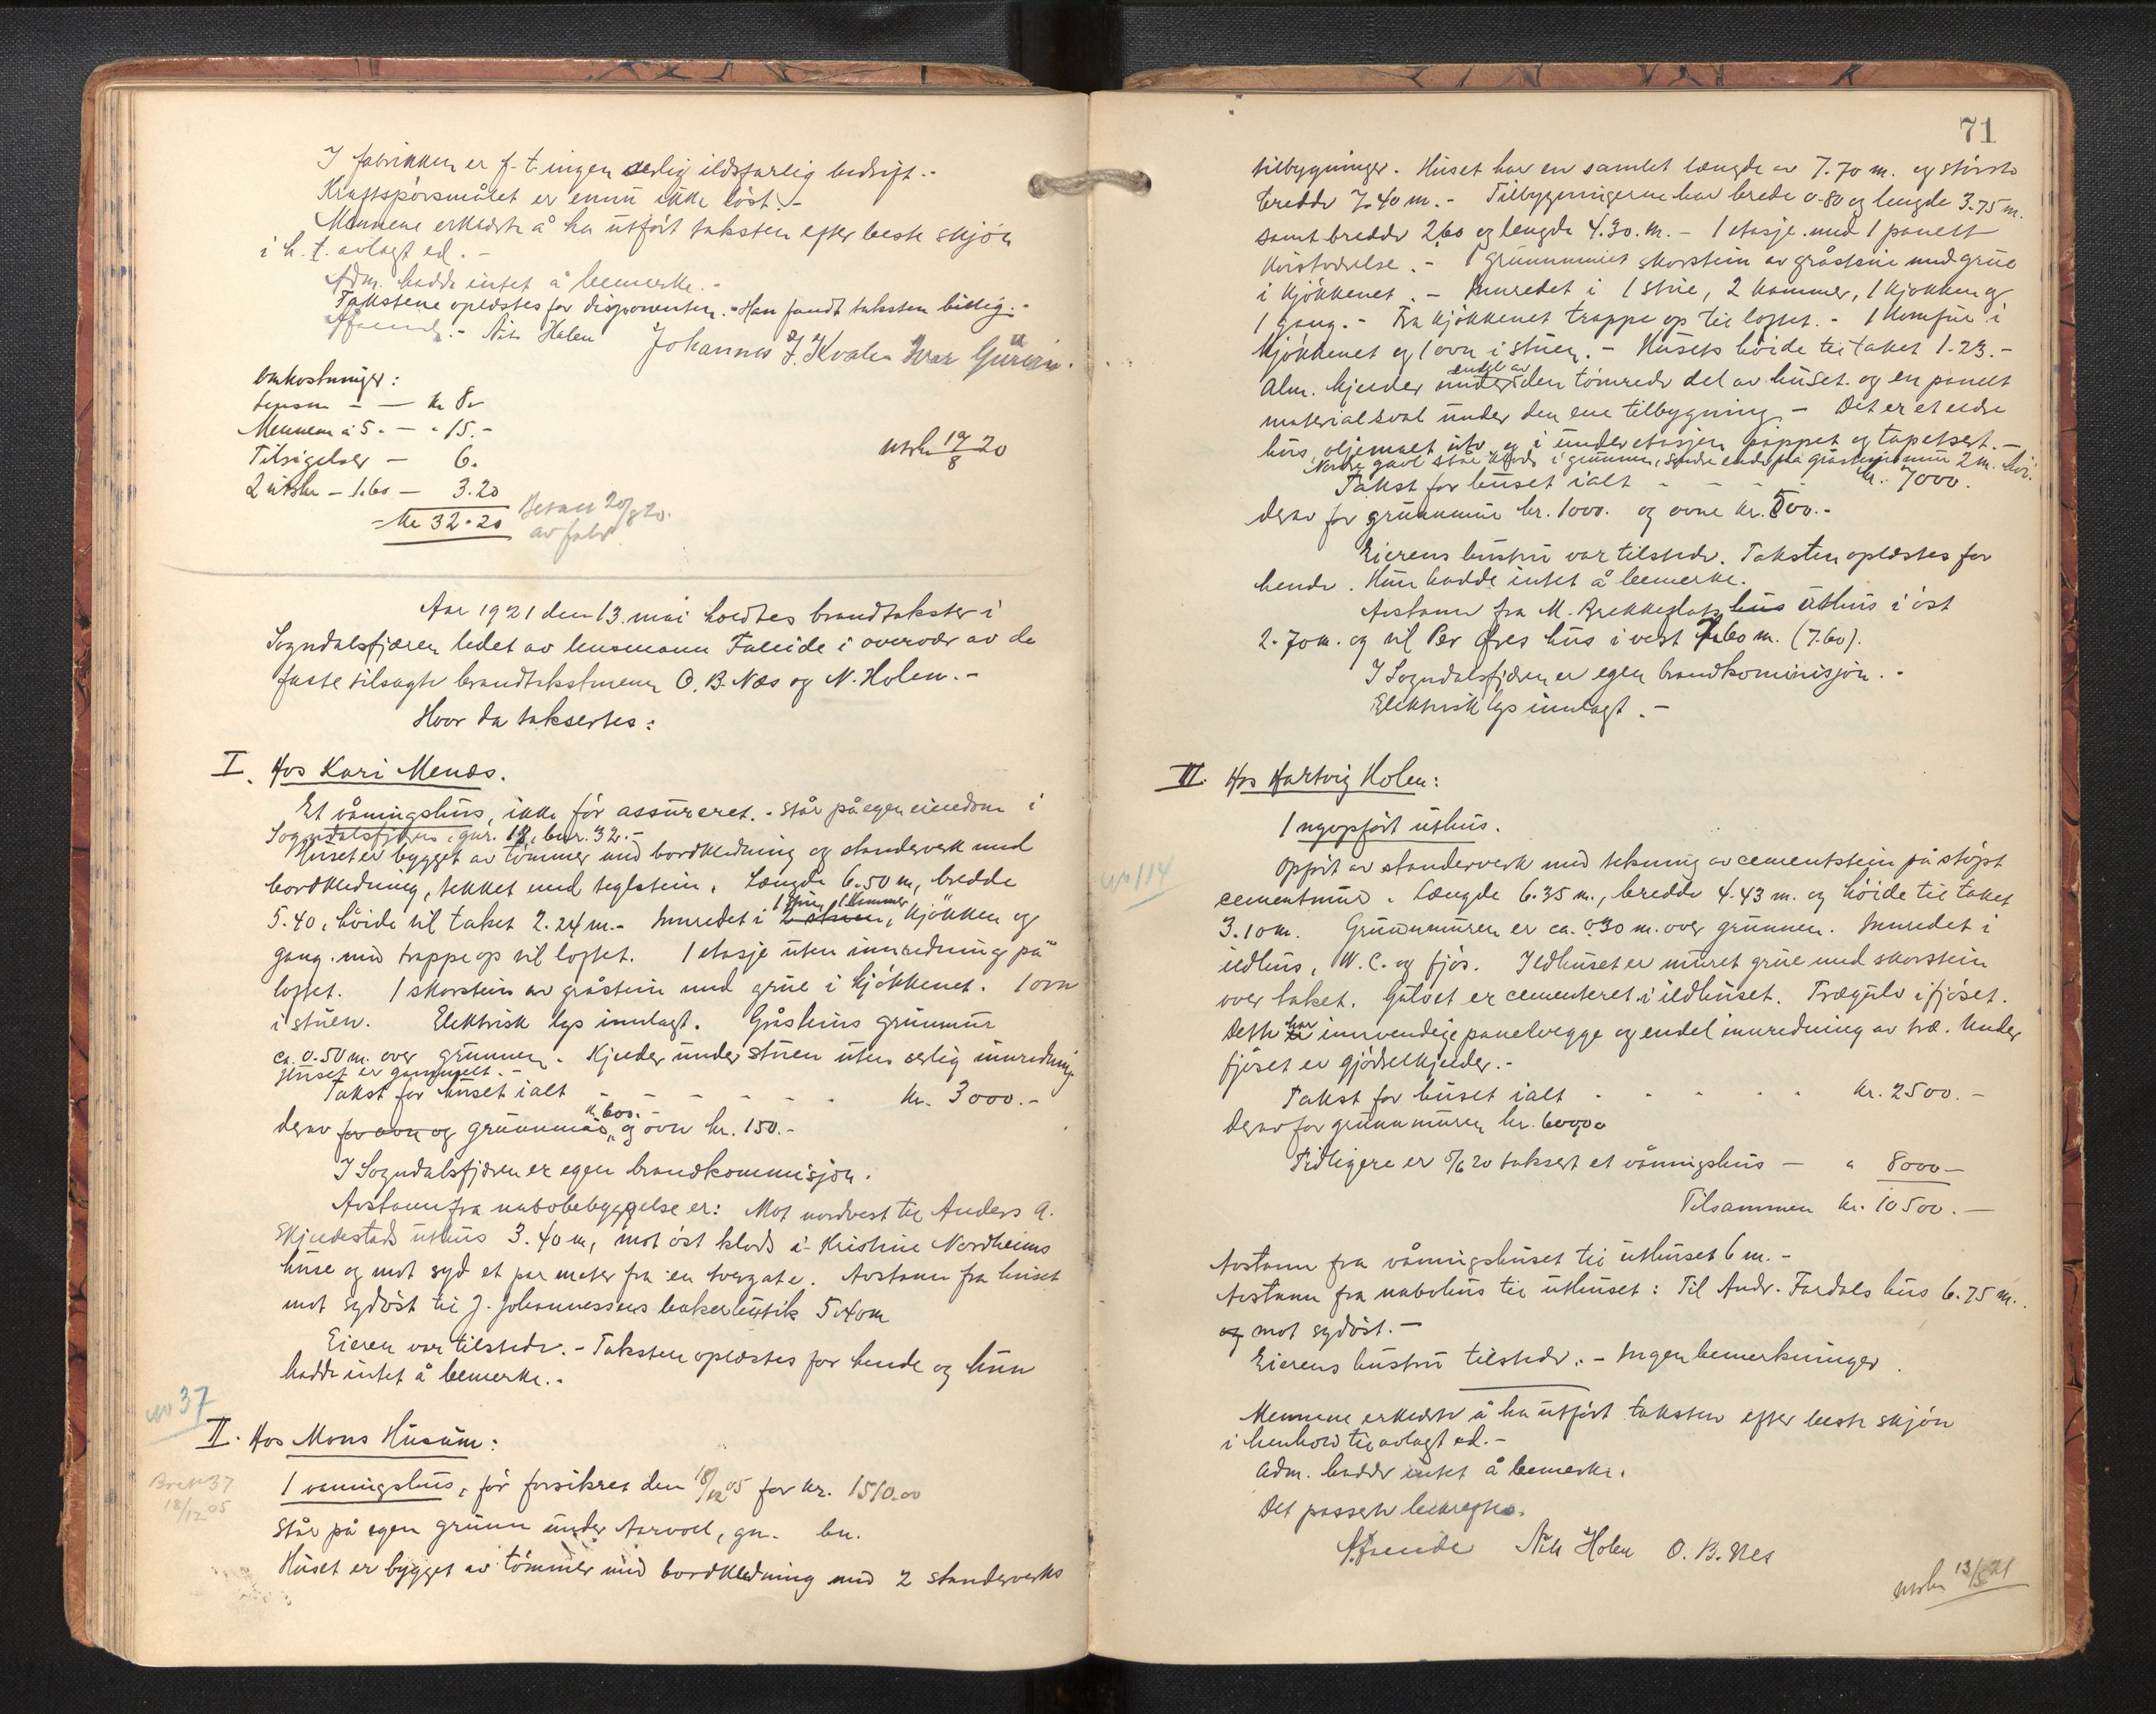 I fabrikken er f. t. ingen serlig ildsfarlig bedrift.-
Kraftspørsmålet er ennu ikke løst.-
Mennene erklærte å ha utført taksten efter beste skjøn
i h. t. avlagt ed.-
Adm. hadde intet å bemerke.-
Takstene oplæstes for disponenten.- Han fandt taksten billig.-
Nils Holen Johannes J. Kvalen Ivar
Omkostninger:
Lensm - — kr 8.-
Mennene à 5.- — " 15.-
Tilsigelser — 6.
2 utskr - 1.60 — 3.20
= kr 32.20
Betalt 20/8 20.
av fabr.
utskr 19/8 20
Aar 1921 den 13. mai holdtes brandtakster i
Sogndalsfjæren ledet av lensmann Faleide i overvær av de
faste tilsagte brandtakstmenn O. B. Næs og N. Holen.-
Hvor da taksertes:
I. Hos Kari Menæs.
Et våningshus, ikke før assureret.- står på egen eiendom i
Sogndalsfjæren, gnr. 18, bnr. 32.-
Huset er bygget av tømmer med bordkledning og standerverk med
bordkledning, tekket med teglstein. Længde 6.50 m, bredde
5.40, høide til taket 2.24 m.- Innredet i 2 stuer, 1 stue, 1 kammer, kjøkken og
gang. med trappe op til loftet. 1 etasje uten innredning på
loftet. 1 skorstein av gråstein med grue i kjøkkenet. 1 ovn
i stuen. Elektrisk lys innlagt. Gråsteins grunnmur
ca. 0.50 m. over grunnen. Kjelder under stuen uten serlig innredning.
Huset er gammelt.-
Takst for huset ialt - - - - - kr. 3000.-
derav for ovn og grunnmur kr. 600.- og ovn kr. 150.-
I Sogndalsfjæren er egen brandkommisjon.
Avstann fra nabobebyggelse er: Mot nordvest til Anders A.
Skjeldestads uthus 3.40 m, mot øst klods i Kristine Nordheims
huse og mot syd et par meter fra en tvergate. Avstann fra huset
mot sydøst til J. Johannessens bakerbutik 5.40 m
Eieren var tilstede.- Taksten oplæstes for hende og hun
hadde intet å bemerke.-
no 37
II. Hos Mons Husum:
Brett 37
18/12 05
1 vaningshus, før forsikret den 18/12 05 for kr. 1510.00
står på egen grunn under Aarvoll, gn. bn.
Huset er bygget av tømmer med bordkledning med 2 standerverks
71
tilbygninger. Huset har en samlet længde av 7.70 m. og største
bredde 7.40 m.- Tilbygningerne har brede 0.80 og lengde 3.75 m.
samt bredde 2.60 og lengde 4.30. m.- 1 etasje med 1 panelt
kvistværelse.- 1 grunnmuret skorstein av gråstein med grue
i kjøkkenet.- Innredet i 1 stue, 2 kammer, 1 kjøkken og
1 gang.- Fra kjøkkenet trappe op til loftet.- 1 komfur i
kjøkkenet og 1 ovn i stuen.- Husets høide til taket 1.23.-
Alm. kjelder under endel av den tømrede del av huset og en panelt
materialsval under den ene tilbygning.- Det er et eldre
hus, oljemalt utv. og i underetasjen pappet og tapetsert.-
Nordre gavl står klods i grunnen, søndre ende på gråsteinsmur 2 m. høi.
Takst for huset ialt - - - - kr. 7000.
derav for grunnmur kr. 1000. og ovne kr. 500.-
Eierens hustru var tilstede. Taksten oplæstes for
hende. Hun hadde intet å bemerke.
Avstann fra M. Brekkeflats hus uthus i øst
2.70 m. og til Per Øves hus i vest 7.60 m. (7.60).
I Sogndalsfjæren er egen brandkommisjon.-
Elektrisk lys innlagt.-
III. Hos Hartvig Holen:
1 nyopført uthus.
no 114
Opført av standerverk med tekning av cementstein på støpt
cementmur. Længde 6.35 m., bredde 4.43 m. og høide til taket
3.10 m. Grunnmuren er ca. 0.30 m. over grunnen. Innredet i
ildhus, W. C. og fjøs. I ildhuset er muret grue med skorstein
over taket. Gulvet er cementeret i ildhuset. Trægulv i fjøset.
Dette har innvendige panelvegge og endel innredning av træ. Under
fjøset er gjødselkjelder.-
Takst for huset ialt - - - - - kr. 2500.-
derav for grunnmuren kr. 600.00
Tidligere er 5/6 20 taksert et våningshus — " 8000.-
Tilsammen kr. 10500.—
Avstann fra våningshuset til uthuset 6 m.-
Avstann fra nabohus til uthuset: Til Andr. Fardals hus 6.75 m.
og mot sydøst.-
Eierens hustru tilstede.- Ingen bemerkninger.
Mennene erklærte å ha utført taksten efter beste skjøn
i henhold til avlagt ed.-
Adm. hadde intet å bemerke.
Det passerte bekreftes.
Faleide Nils Holen O. B. Nes
utskr 13/5 21